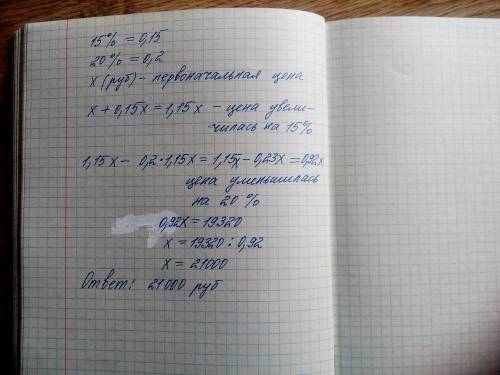 15% = 0,15
20% = 0,2
x (руб) - первоначальная цена
x + 0,15x = 1,15x - цена увели-
чилась на 15%
1,15x - 0,2·1,15x = 1,15x - 0,23x = 0,92x
цена уменьшилась
на 20%
0,92x = 19320
x = 19320 : 0,92
x = 21000
Ответ: 21000 руб